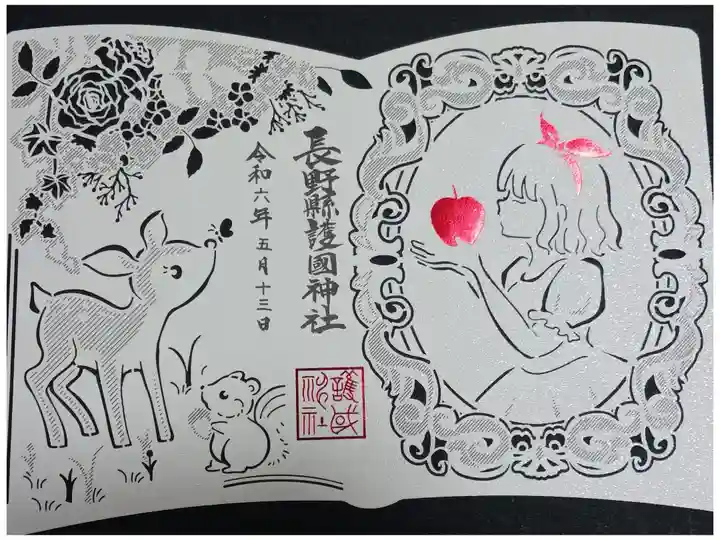 長野縣護國神社
令和六年五月十三日
護國
神社